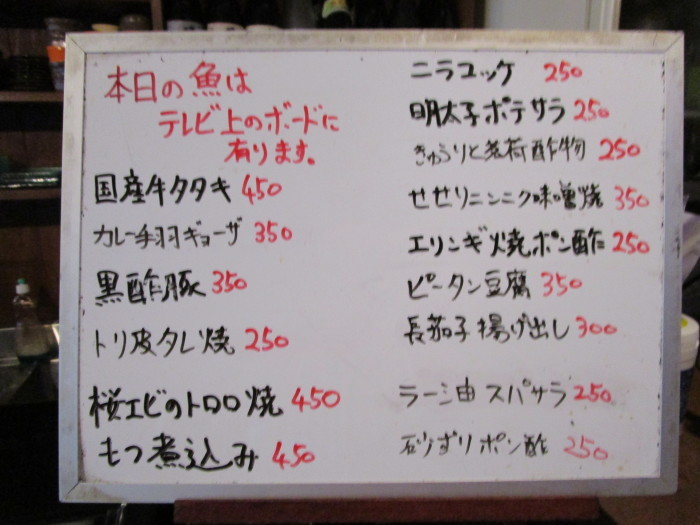 本日の魚は
テレビ上のボードに
有ります。
国産牛タタキ 450
カレー手羽ギョーザ 350
黒酢豚 350
トリ皮タレ焼 250
桜エビのトロロ焼 450
もつ煮込み 450
ニラユッケ 250
明太子ポテサラ 250
きゅうりと茗荷酢物 250
せせりニンニク味噌焼 350
エリンギ焼ポン酢 250
ピータン豆腐 350
長茄子揚げ出し 300
ラー油スパサラ 250
砂ずりポン酢 250